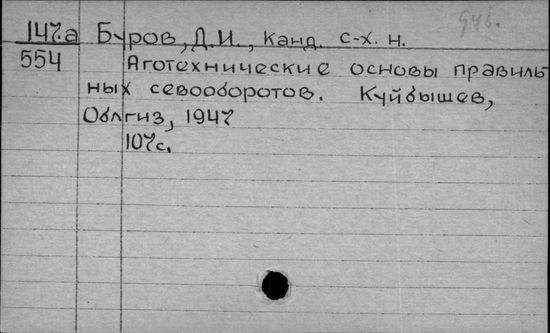 147.а Буров, Д.И., канд. с-х. н.
554 Аготехнические основы правиль-
ных севооборотов. Куйбышев,
Облгиз, 1947
107с.